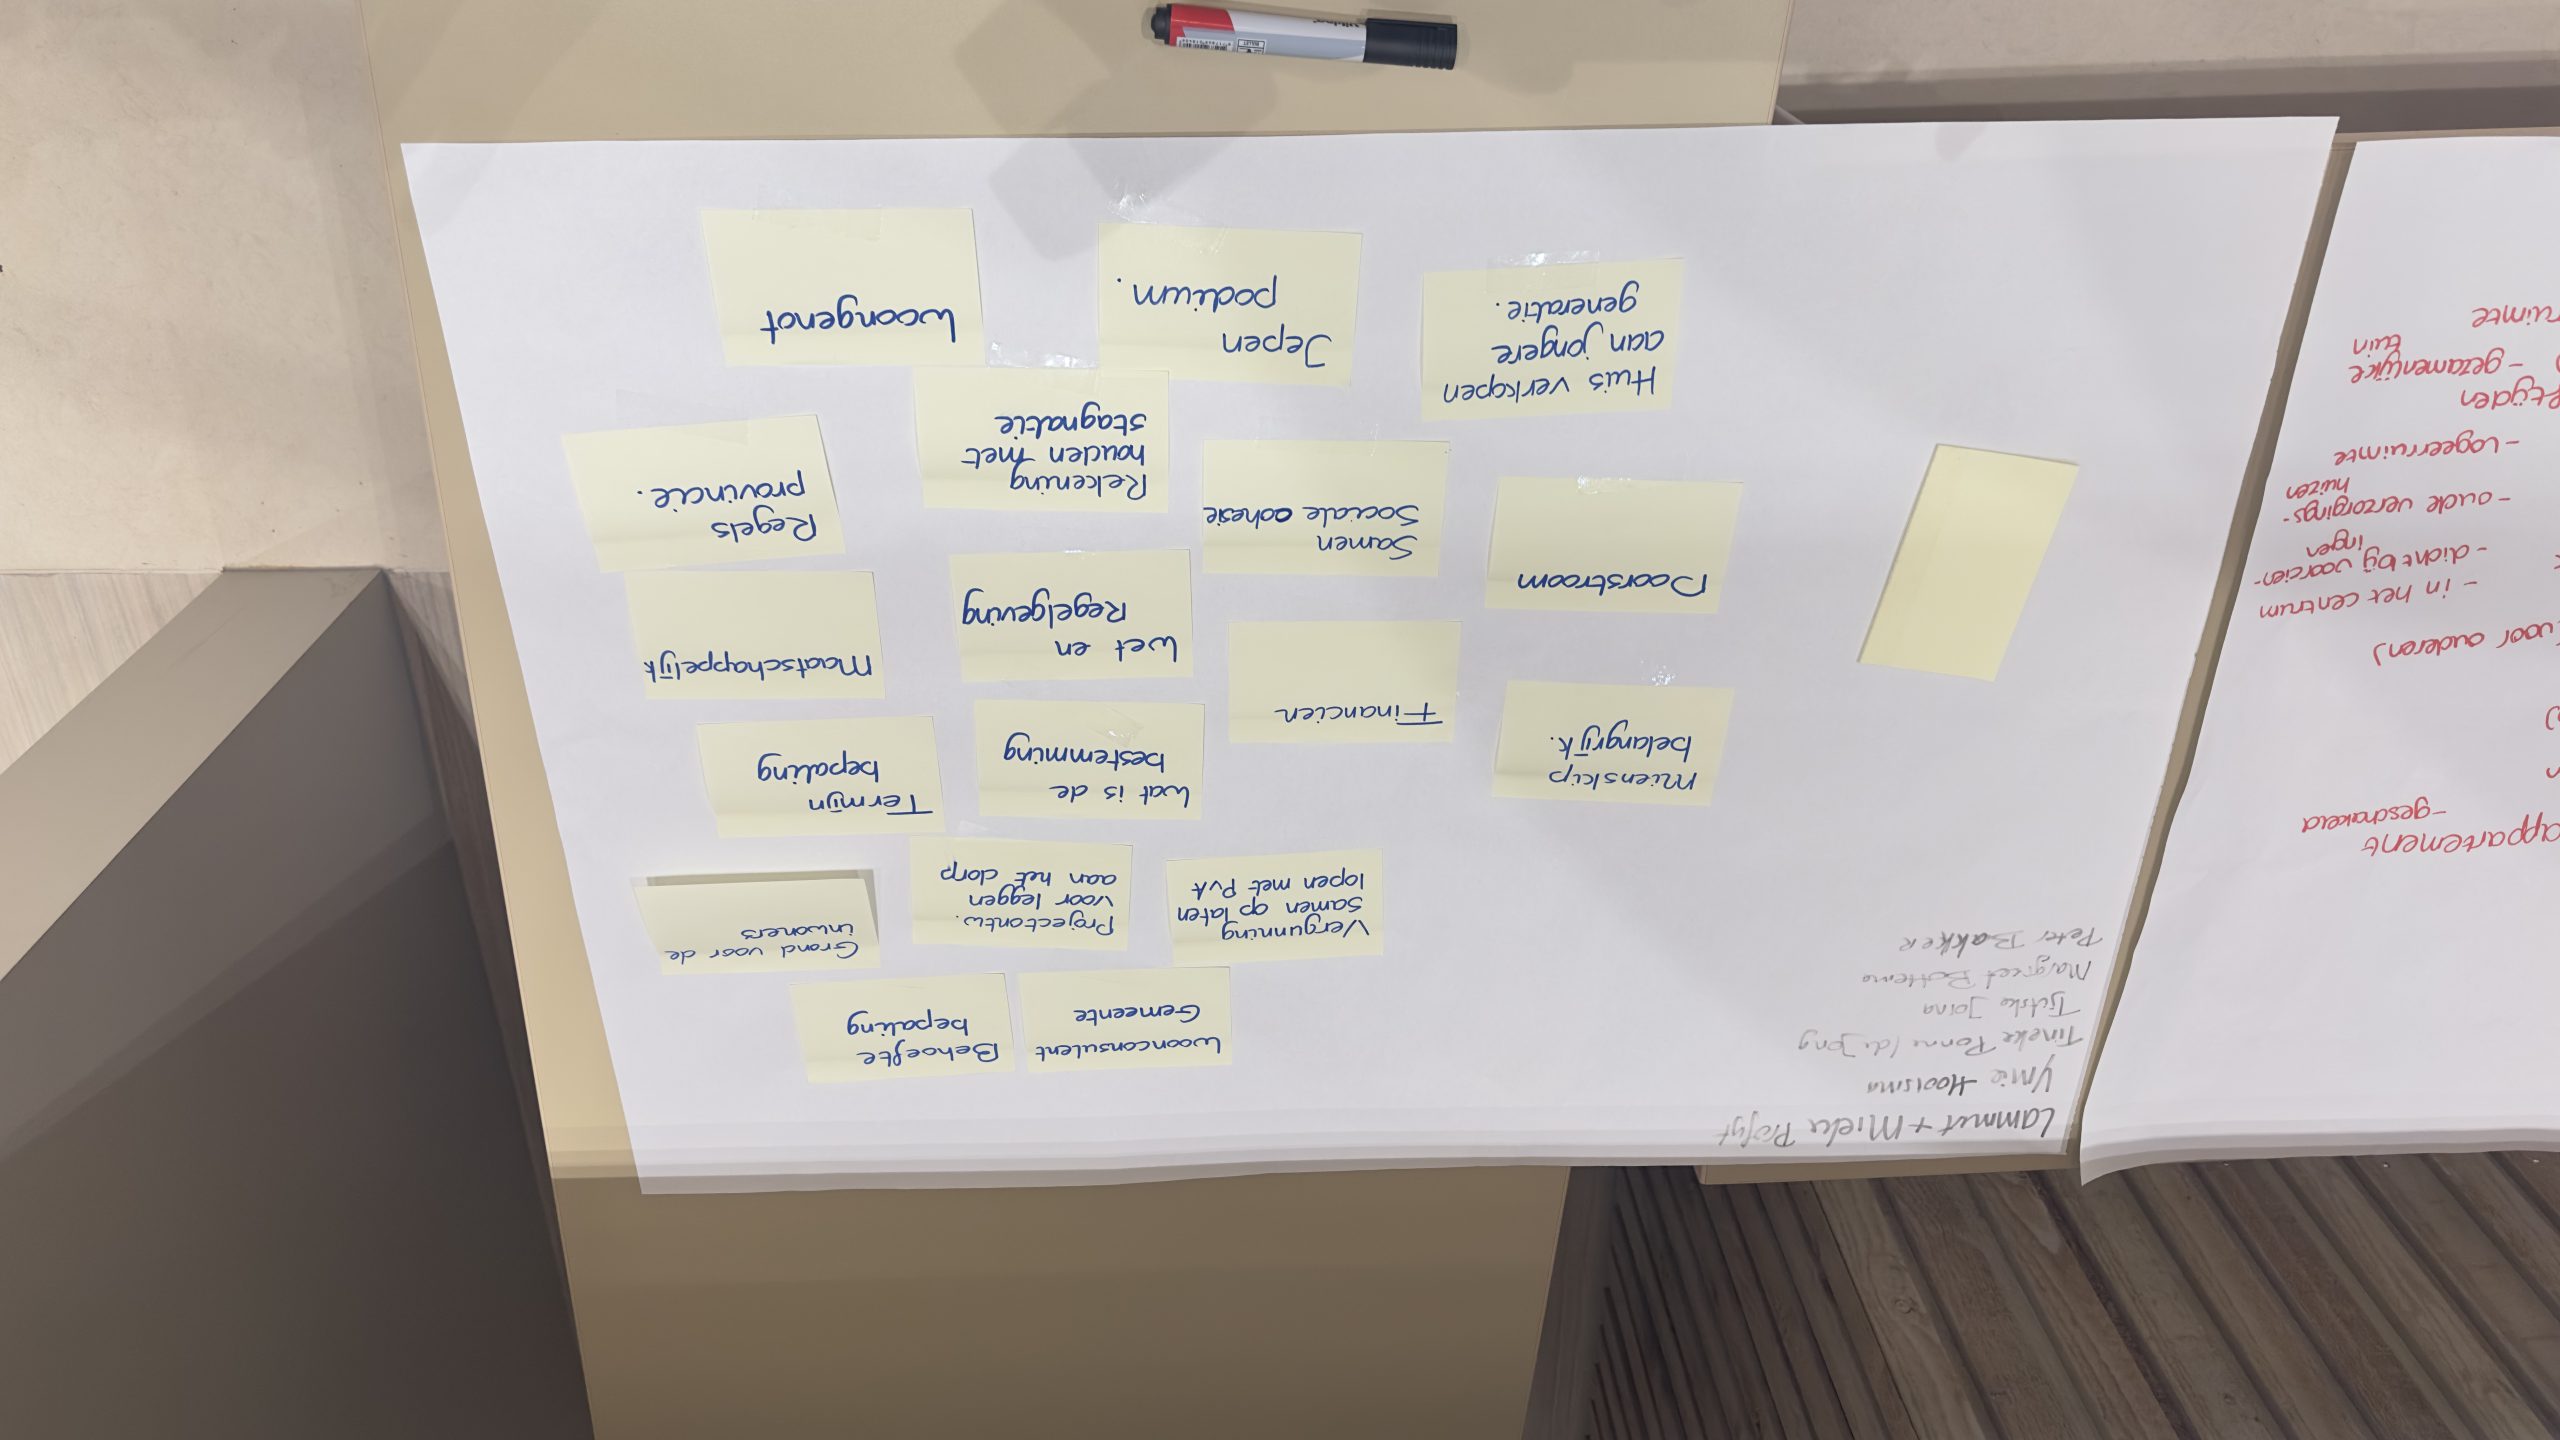 Lammert + Mieke
Ymie Hooisma
Tineke
Tjitske Joina
Margreet Bottema
Peter Bakker
Woonconsulent
Gemeente
Behoefte
bepaling
Vergunning
samen op laten
lopen met PvA
Projectontw.
voor leggen
aan het dorp
Grond voor de
inwoners
mienskip
belangrijk.
Financien
Wat is de
bestemming
Termijn
bepaling
Doorstroom
Samen
Sociale cohesie
Wet en
Regelgeving
Maatschappelijk
Huis verkopen
aan jongere
generatie.
Rekening
houden met
stagnatie
Regels
provincie.
Iepen
podium.
Woongenot
appartement
-geschakeld
(voor ouderen)
- in het centrum
- dichtbij voorzien-
ingen
- oude verzorgings-
huizen
- Logeerruimte
- gezamenlijke
tuin
ruimte